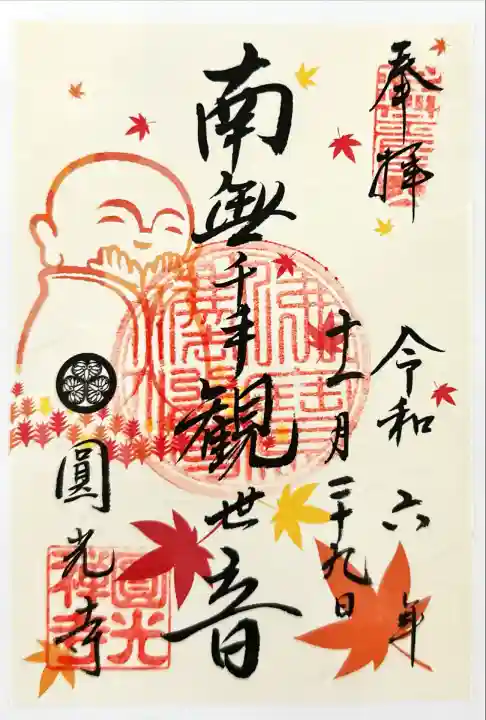 奉拝
令和六年
十一月二十九日
南無千手観世音
圓光寺
圓光
禅寺